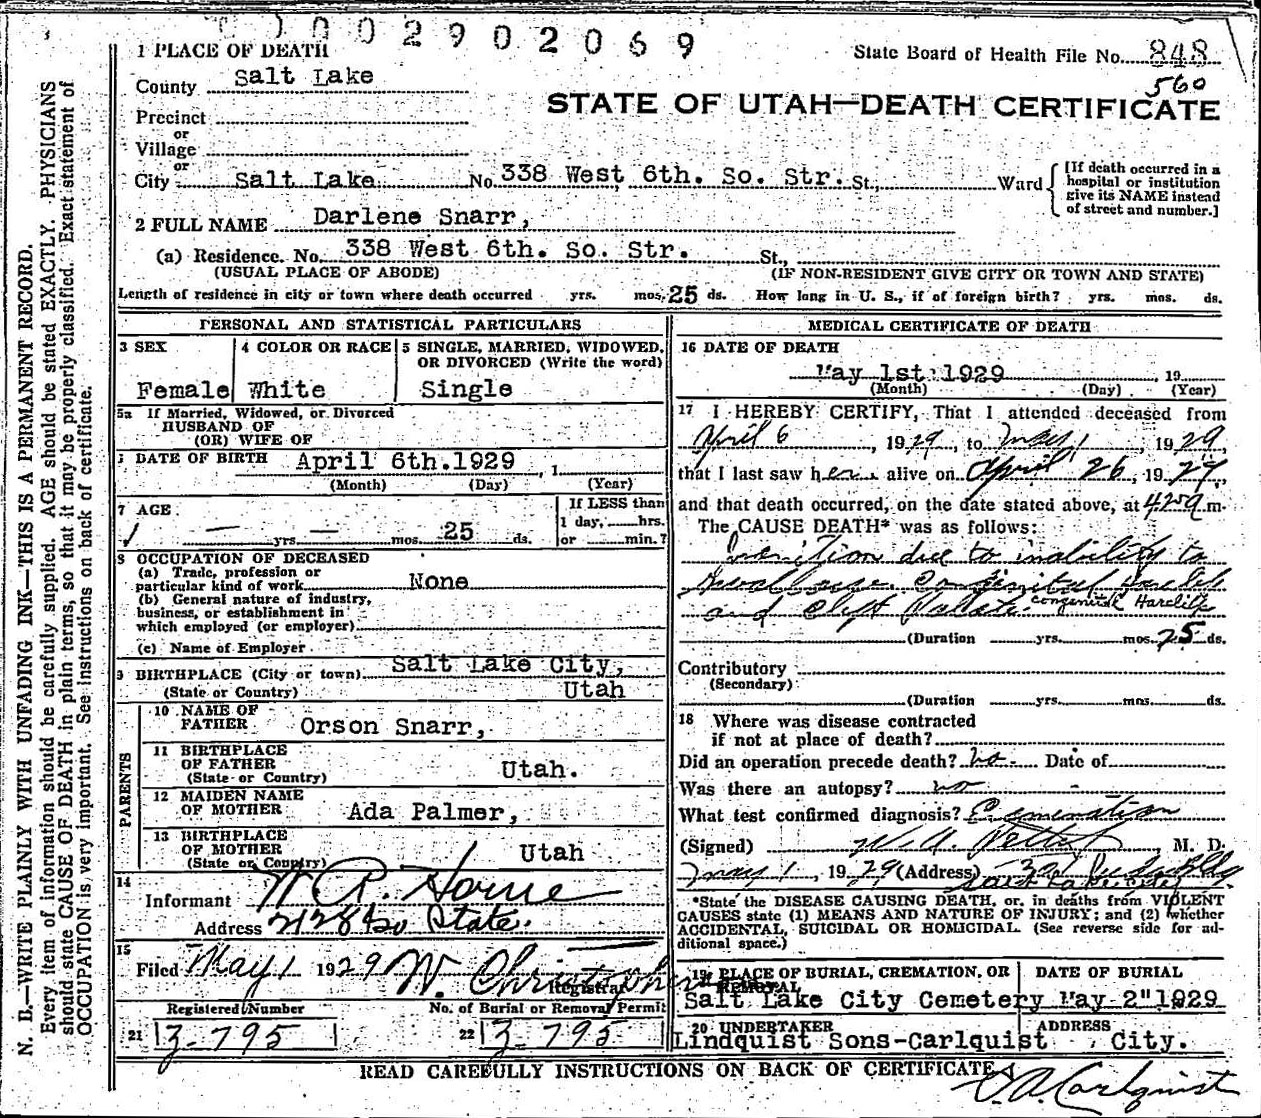 0 0 2 9 0 2 0 6 9
1 PLACE OF DEATH
State Board of Health File No. 848
560
County Salt Lake
STATE OF UTAH—DEATH CERTIFICATE
Precinct
or
Village
or
City Salt Lake No. 338 West 6th. So. Str. St., Ward
[If death occurred in a hospital or institution give its NAME instead of street and number.]
2 FULL NAME Darlene Snarr,
(a) Residence. No. 338 West 6th. So. Str. St.,
(USUAL PLACE OF ABODE) (IF NON-RESIDENT GIVE CITY OR TOWN AND STATE)
Length of residence in city or town where death occurred yrs. mos. 25 ds. How long in U. S., if of foreign birth? yrs. mos. ds.
PERSONAL AND STATISTICAL PARTICULARS
3 SEX
Female
4 COLOR OR RACE
White
5 SINGLE, MARRIED, WIDOWED,
OR DIVORCED (Write the word)
Single
5a If Married, Widowed, or Divorced
HUSBAND OF
(OR) WIFE OF
DATE OF BIRTH April 6th.1929 , 1
(Month) (Day) (Year)
7 AGE
— yrs. — mos. 25 ds.
If LESS than
1 day, hrs.
or min.?
8 OCCUPATION OF DECEASED
(a) Trade, profession or
particular kind of work None
(b) General nature of industry,
business, or establishment in
which employed (or employer)
(c) Name of Employer
9 BIRTHPLACE (City or town) Salt Lake City,
(State or Country) Utah
PARENTS
10 NAME OF
FATHER Orson Snarr,
11 BIRTHPLACE
OF FATHER
(State or Country) Utah.
12 MAIDEN NAME
OF MOTHER Ada Palmer,
13 BIRTHPLACE
OF MOTHER
(State or Country) Utah
14
Informant W R. Horne
Address 2128 So State.
15
Filed May 1 1929 W. Christopherson
Registrar
Registered Number
21 Z-795
No. of Burial or Removal Permit
22 Z-795
MEDICAL CERTIFICATE OF DEATH
16 DATE OF DEATH
May 1st 1929 , 19
(Month) (Day) (Year)
17 I HEREBY CERTIFY, That I attended deceased from
April 6 , 1929, to May 1 , 1929,
that I last saw her alive on April 26, 1929,
and that death occurred, on the date stated above, at m.
The CAUSE DEATH* was as follows:
Inanition due to inability to
swallow. Congenital Harelip
and Cleft Palate. congenital Harelip
(Duration yrs. mos. 25 ds.
Contributory
(Secondary)
(Duration yrs. mos. ds.
18 Where was disease contracted
if not at place of death?
Did an operation precede death? no Date of
Was there an autopsy? no
What test confirmed diagnosis? Examination
(Signed) , M. D.
May 1, 1929 (Address) Judge Bldg
Salt Lake City
*State the DISEASE CAUSING DEATH, or, in deaths from VIOLENT
CAUSES state (1) MEANS AND NATURE OF INJURY; and (2) whether
ACCIDENTAL, SUICIDAL OR HOMICIDAL. (See reverse side for ad-
ditional space.)
19 PLACE OF BURIAL, CREMATION, OR
REMOVAL
Salt Lake City Cemetery
DATE OF BURIAL
May 2" 1929
20 UNDERTAKER
Lindquist Sons-Carlquist
ADDRESS
City.
READ CAREFULLY INSTRUCTIONS ON BACK OF CERTIFICATE
C. A. Carlquist
N. B.—WRITE PLAINLY WITH UNFADING INK—THIS IS A PERMANENT RECORD.
Every item of information should be carefully supplied. AGE should be stated EXACTLY. PHYSICIANS
should state CAUSE OF DEATH in plain terms, so that it may be properly classified. Exact statement of
OCCUPATION is very important. See instructions on back of certificate.